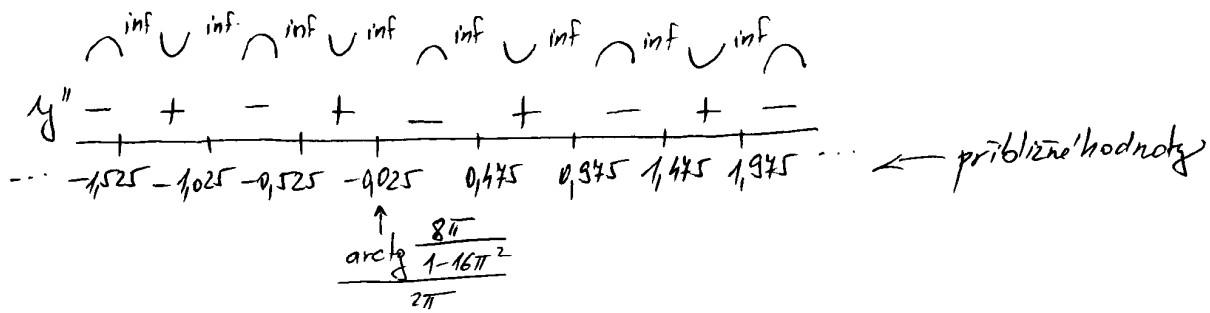 inf inf. inf inf inf inf inf inf
y" − + − + − + − + −
... −1,525 −1,025 −0,525 −0,025 0,475 0,975 1,475 1,975 ... ← přibližné hodnoty
↑
arctg 8π / (1−16π²)
2π